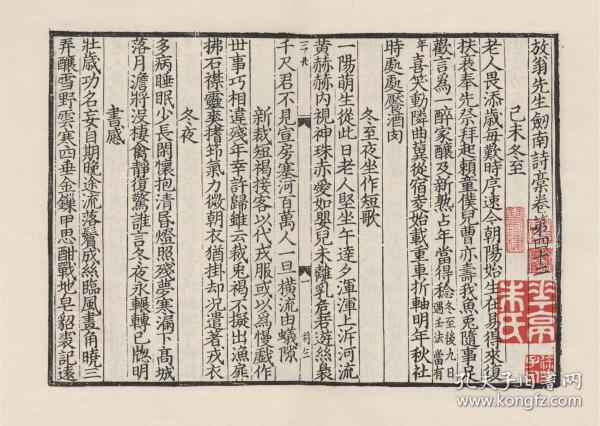 放翁先生劔南詩藁卷第四十二
己未冬至
老人畏添歲每歎時序速今朝陽始生在易得來復
扶衰奉先祭拜起賴童僕兒曹亦壽我魚兔隨事足
歡言為一醉家釀及新熟占年當得稔冬至後九日遇壬法當有
年喜笑動隣曲蓂從宿麥始載重車折軸明年秋社
時處處壓酒肉
冬至夜坐作短歌
一陽萌生從此日老人堅坐午達夕渾渾上泝河流
黃赫赫内視神珠赤愛如嬰兒未離乳危若遊絲裊
千尺君不見宣房塞河百萬人一旦橫流由蟻隙
新裁短褐接客以代戎服或以為慢戲作
世事巧相違殘年幸許歸雖云裁兎褐不擬出漁扉
拂石襟靈爽搘筇氣力微朝衣猶掛却况遣著戎衣
冬夜
多病睡眠少長閑懷抱清昏燈照殘夢寒漏下髙城
落月澹將没棲禽靜復驚誰言冬夜永輾轉已牕明
書感
壯歲功名妄自期晚途流落鬢成絲臨風畫角曉三
弄釀雪野雲寒四垂金鏁甲思酣戰地皂貂裘記遠
孔夫子旧书网
www.kongfz.com